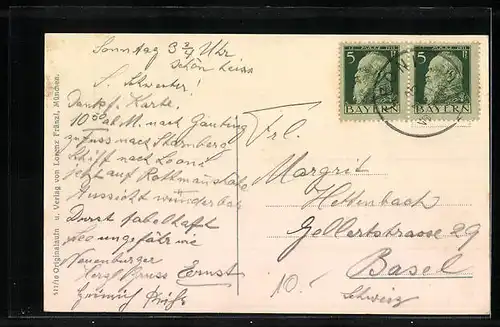 Sonntag 3 3/4 Uhr
schön heiss
S. Schwester!
Dank f. Karte.
10°° ab M. nach Gauting
zu Fuss nach Starnberg
Schiff nach Leoni
jetzt auf Rottmannshöhe
Aussicht wunderbar
Durst fabelhaft
Leo ungefähr wie
Neuenburger
Herzl Gruss Ernst
Heinrich
Frl.
Margrit
Hettenbach
Gellertstrasse 29
Basel
Schweiz
10.-
5 5
BAYERN BAYERN
u. Verlag von Lorenz Fränzl, München.